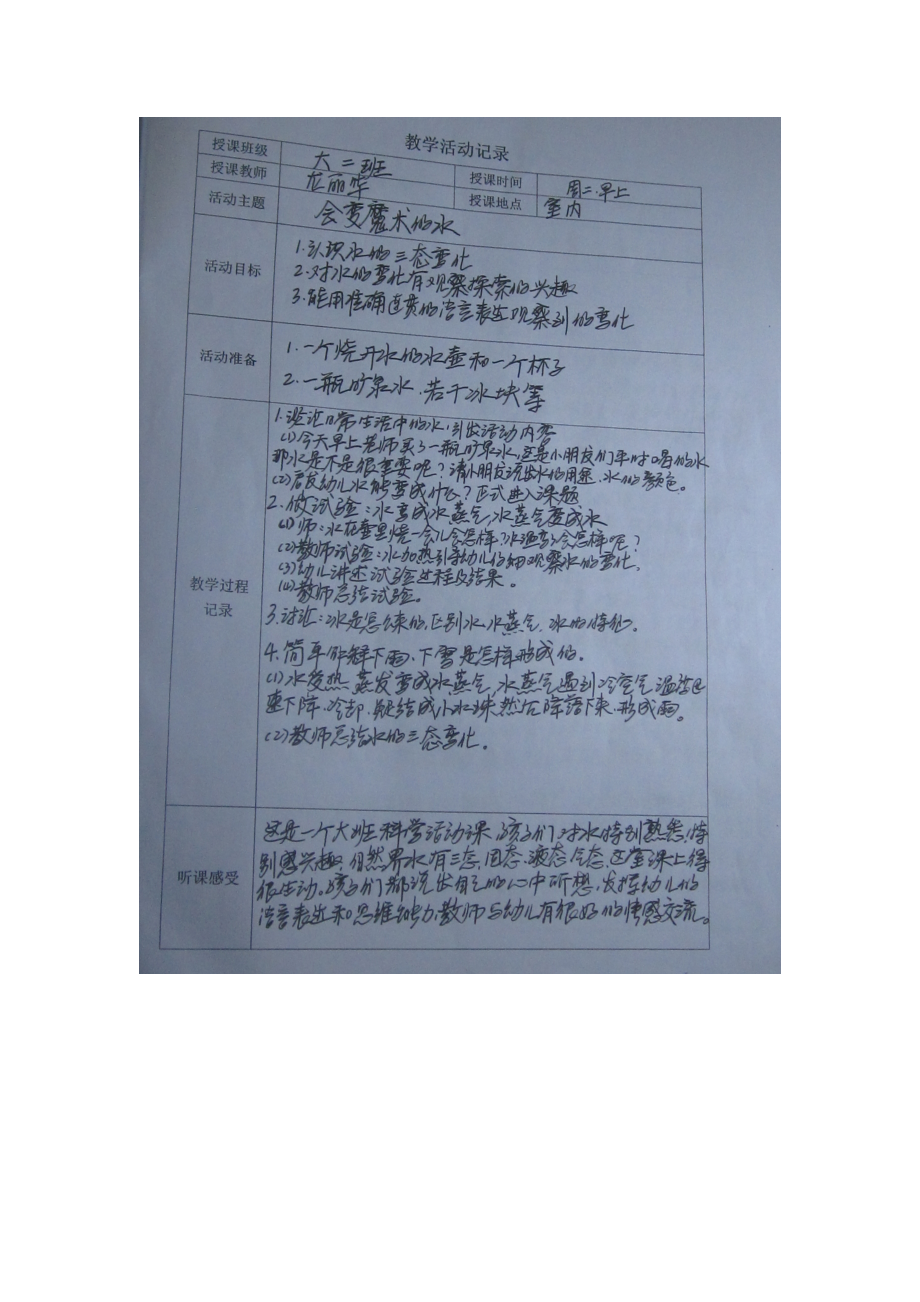 教学活动记录
授课班级 大二班 授课时间 周二.早上
授课教师 龙丽华 授课地点 室内
活动主题 会变魔术的水
活动目标
1.认识水的三态变化
2.对水的变化有观察探索的兴趣
3.能用准确连贯的语言表述观察到的变化
活动准备
1.一个烧开水的水壶和一个杯子
2.一瓶矿泉水.若干冰块等
教学过程
记录
1.谈论日常生活中的水,引出活动内容
(1)今天早上老师买了一瓶矿泉水,这是小朋友们平时喝的水
那水是不是很重要呢?请小朋友说出水的用途.水的颜色。
(2)启发幼儿水能变成什么?正式进入课题
2.做试验:水变成水蒸气,水蒸气变成水
(1)师:水在壶里烧一会儿会怎样?冰遇热会怎样呢?
(2)教师试验:水加热引导幼儿仔细观察水的变化.
(3)幼儿讲述试验过程及结果。
(4)教师总结试验。
3.讨论:冰是怎么来的,区别水,水蒸气.冰的特征。
4.简单的解下雨.下雪是怎样形成的。
(1)水受热 蒸发变成水蒸气,水蒸气遇到冷空气温度迅
速下降.冷却.凝结成小水珠然后降落下来.形成雨。
(2)教师总结水的三态变化。
听课感受
这是一个大班科学活动课 孩子们对水特别熟悉,特
别感兴趣,自然界水有三态,固态.液态气态.这堂课上得
很生动。孩子们都说出自己的心中所想,发挥幼儿的
语言表达和思维能力,教师与幼儿有很好的情感交流。